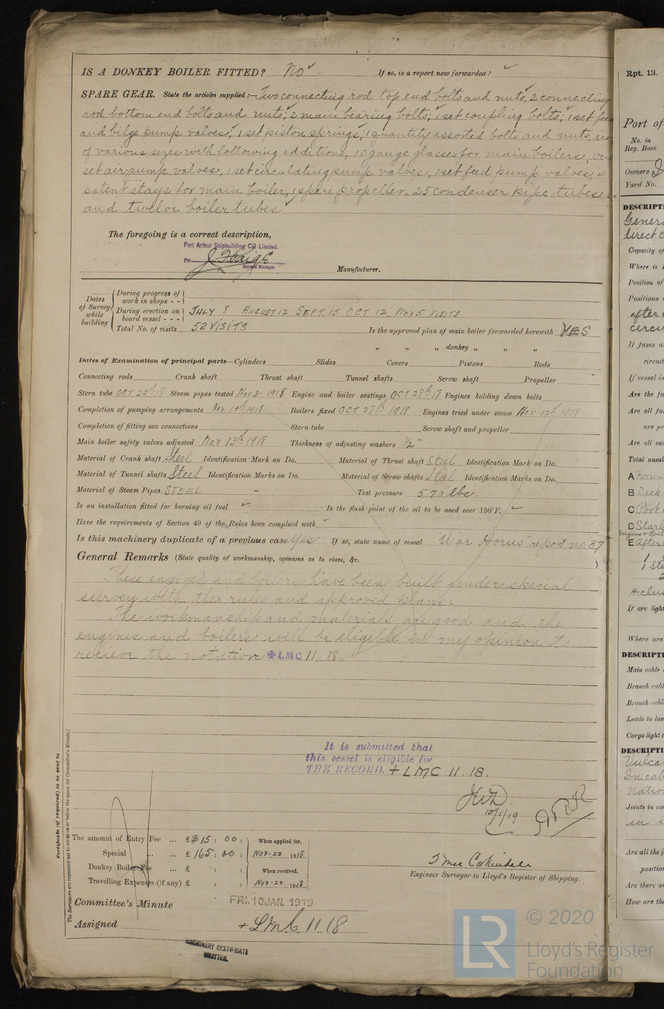 IS A DONKEY BOILER FITTED? No If so, is a report now forwarded?
SPARE GEAR. State the articles supplied:— Two connecting rod top end bolts and nuts, 2 connecting
rod bottom end bolts and nuts, 2 main bearing bolts, 1 set coupling bolts, 1 set feed
and bilge pump valves, 1 set piston springs, 1 quantity assorted bolts and nuts, iron
of various sizes with following additions, 10 gauge glasses for main boilers, one
set air pump valves, 1 set circulating pump valves, 1 set feed pump valves,
patent stays for main boiler, 1 spare propeller, 25 condenser pipe tubes
and twelve boiler tubes.
The foregoing is a correct description,
Port Arthur Shipbuilding Co. Limited.
Per
General Manager
Manufacturer.
Dates of Survey while building
During progress of work in shops - -
During erection on board vessel - - - JULY 8 AUGUST 12 SEPT. 15 OCT 12, NOV 5 VISITS
Total No. of visits 52 VISITS Is the approved plan of main boiler forwarded herewith YES
" " " donkey " " "
Dates of Examination of principal parts—Cylinders Slides Covers Pistons Rods
Connecting rods Crank shaft Thrust shaft Tunnel shafts Screw shaft Propeller
Stern tube OCT 22nd 18 Steam pipes tested Nov 3- 1918 Engine and boiler seatings OCT 29th 18 Engines holding down bolts
Completion of pumping arrangements Nov 14th 1918 Boilers fixed OCT 29th 1918 Engines tried under steam Nov 13th 1918
Completion of fitting sea connections Stern tube Screw shaft and propeller
Main boiler safety valves adjusted Nov 13th 1918 Thickness of adjusting washers 1/2"
Material of Crank shaft Steel Identification Mark on Do. Material of Thrust shaft Steel Identification Mark on Do.
Material of Tunnel shafts Steel Identification Marks on Do. Material of Screw shafts Steel Identification Marks on Do.
Material of Steam Pipes STEEL Test pressure 570 lbs.
Is an installation fitted for burning oil fuel Is the flash point of the oil to be used over 150°F.
Have the requirements of Section 49 of the Rules been complied with
Is this machinery duplicate of a previous case Yes If so, state name of vessel "War Horus" report no. 37
General Remarks (State quality of workmanship, opinions as to class, &c.
These engines and boilers have been built under special
survey with the rules and approved plans.
The workmanship and materials are good and the
engines and boilers will be eligible in my opinion to
recieve the notation ✠LMC 11 18
It is submitted that
this vessel is eligible for
THE RECORD. + LMC 11.18.
10/1/19
Certificate (if required) to be sent to
The Surveyors are requested not to write on or below the space for Committee's Minute.
The amount of Entry Fee ... £ 15 : 00 : When applied for,
Special ... £ 165 : 00 : Nov-22 1918
Donkey Boiler Fee ... £ : : When received,
Travelling Expenses (if any) £ : : Nov-22 1918
Engineer Surveyor to Lloyd's Register of Shipping.
Committee's Minute FRI. 10 JAN. 1919
Assigned + LMC 11.18
MACHINERY CERTIFICATE
WRITTEN.
Rpt. 13.
Port of
No. in
Reg. Book
Owners
Yard No.
Capacity of
Where is
Position of
Positions
after
If fuses a
If vessel is
Are the fu
Are all fu
Are all su
Total numb
A
B
C
D
E
If are light
Where are
Main cable
Branch cabl
Branch cabl
Leads to lam
Cargo light c
Joints in ca
Are all the j
position
Are there a
How are the
© 2020
LR
Lloyd's Register
Foundation